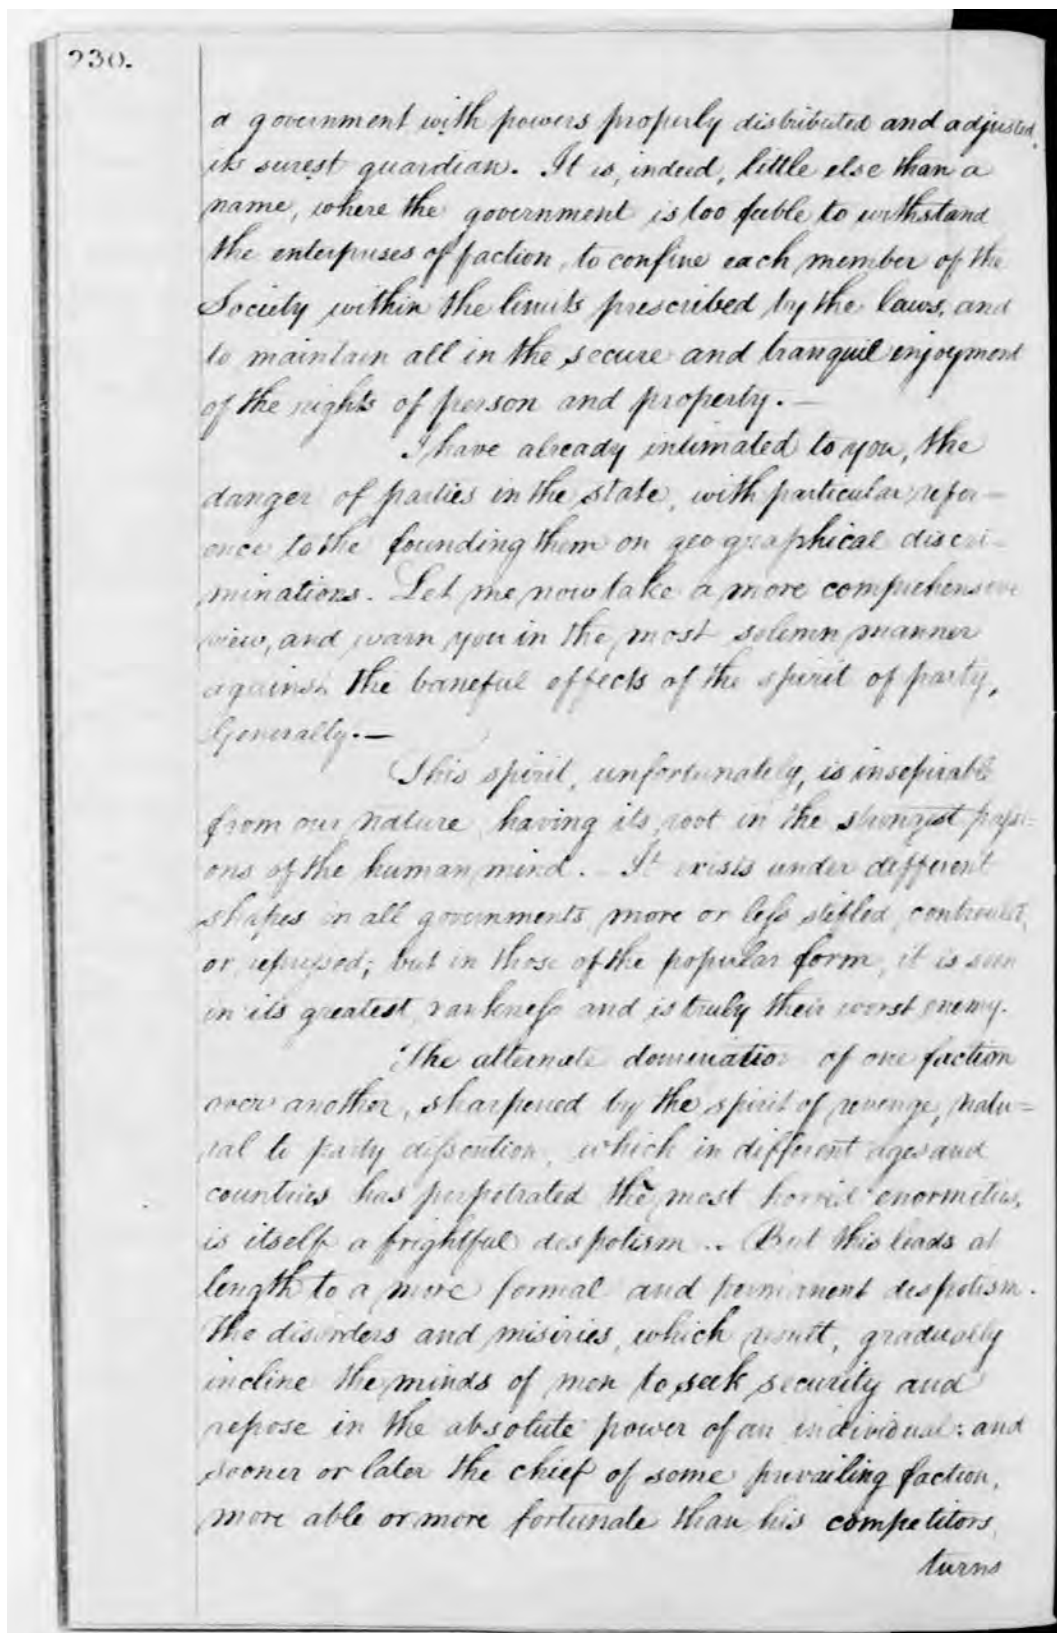 230.
a government with powers properly distributed and adjusted,
its surest guardian. It is, indeed, little else than a
name, where the government is too feeble to withstand
the enterprises of faction, to confine each member of the
Society within the limits prescribed by the laws, and
to maintain all in the secure and tranquil enjoyment
of the rights of person and property. —
I have already intimated to you, the
danger of parties in the state, with particular refer-
ence to the founding them on geographical discri-
minations. Let me now take a more comprehensive
view, and warn you in the most solemn manner
against the baneful effects of the spirit of party,
Generally. —
This spirit, unfortunately, is inseperable
from our nature, having its root in the strongest passi=
ons of the human mind. - It exists under different
shapes in all governments, more or less stifled, controuled,
or repressed; but in those of the popular form, it is seen
in its greatest rankness and is truly their worst enemy.
The alternate domination of one faction
over another, sharpened by the spirit of revenge, natu=
ral to party dissention, which in different ages and
countries has perpetrated the most horrid enormeties,
is itself a frightful despotism .. But this leads at
length to a more formal and permanent despotism.
The disorders and miseries, which result, gradually
incline the minds of men to seek security and
repose in the absolute power of an individual: and
sooner or later the chief of some prevailing faction,
more able or more fortunate than his competitors,
turns